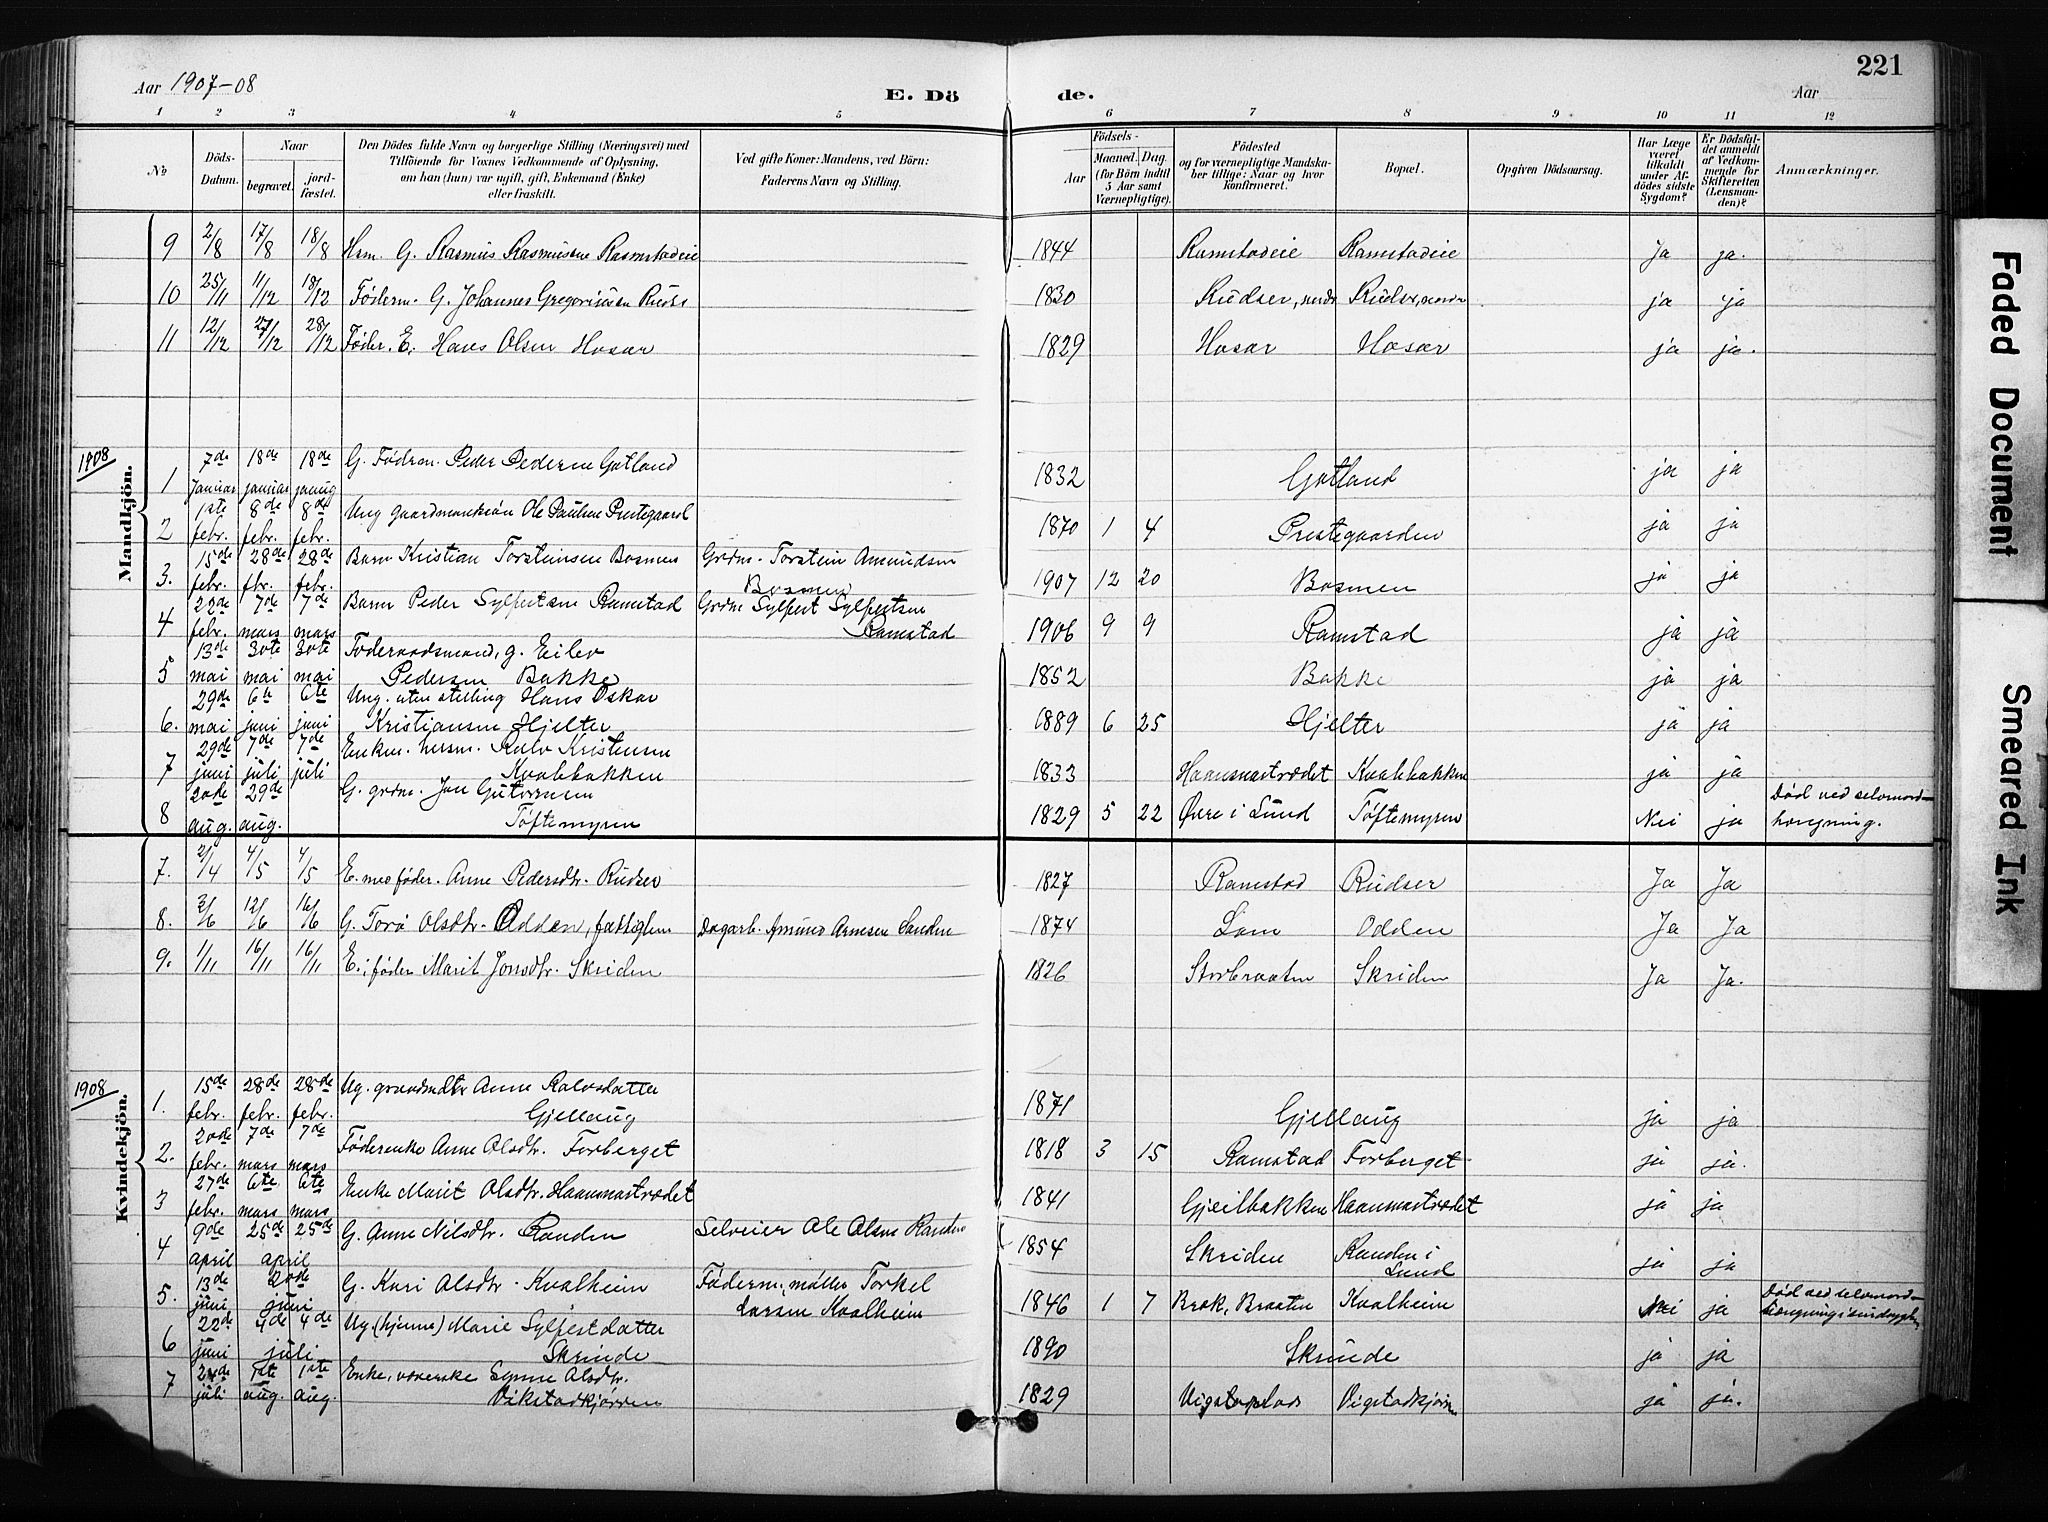 Aar 1907-08
E. Dö
de.
Aar
221
1 2 3 4 5 6 7 8 9 10 11 12
№
Döds-Datum.
Naar
begravet.
jord-fæstet.
Den Dödes fulde Navn og borgerlige Stilling (Næringsvei) med
Tilföiende for Voxnes Vedkommende af Oplysning,
om han (hun) var ugift, gift, Enkemand (Enke)
eller fraskilt.
Ved gifte Koner: Mandens, ved Börn:
Faderens Navn og Stilling.
Födsels-
Aar
Maaned. Dag.
(for Börn indtil
5 Aar samt
Værnepligtige).
Födested
og for værnepligtige Mandska-
ber tillige: Naar og hvor
konfirmeret.
Bopæl.
Opgiven Dödsaarsag.
Har Læge
været
tilkaldt
under Af-
dödes sidste
Sygdom?
Er Dödsfal-
det anmeldt
af Vedkom-
mende for
Skifteretten
(Lensman-
den)?
Anmærkninger.
9 2/8 17/8 18/8 Hsm. G. Rasmus Rasmussen Ramstadeie 1844 Ramstadeie Ramstadeie Ja ja.
10 25/11 11/12 18/12 Föderm. G. Johannes Gregoriusen 1830 Rudser, nordr Rudser, nordr ja ja
11 12/12 27/12 28/12 Föder. E. Hans Olsen Hosar 1829 Hosar Hosar ja ja.
1908
Mandkjön.
1 7de Januar 18de januar 18de G. Föderm. Peder Pedersen Gotland 1832 Gotland ja ja
2 1ste febr. 8de febr. 8de febr. Ung gaardmandssön Ole Paulsen Prestegaard 1870 1 4 Prestegaarden ja ja
3. 15de febr. 28de febr. 28de febr. Barn Kristian Torsteinsen Bosmen Grdm. Torstein Amundsen Bosmen 1907 12 20 Bosmen ja ja
4 22de febr. 7de mars 7de mars Barn Peder Sylfestsen Ramstad Grdm Sylfest Sylfestsen Ramstad 1906 9 9 Ramstad ja ja
5 13de mai 30te mai 30te mai Föderaadsmand, g. Eilev Pedersen Bakke 1852 Bakke ja ja
6. 29de mai 6te juni 6te juni Ung. uten stilling Hans Oskar Kristiansen Hjelter 1889 6 25 Hjelter ja ja
7 29de juni 7de juli 7de juli Enkem. husm. Rolv Kristensen Kvalebakken 1833 Haansnastrædet Kvalebakken ja ja
8 20de aug. 29de aug. G. grdm. Jon Guttormsen Töftemyren 1829 5 22 Øvre i Lund Töftemyren Nei ja Död ved selvmord- hængning.
7. 2/4 4/5 4/5 E. med föder. Anne Pedersdtr. Rudser 1827 Ramstad Rudser Ja Ja
8. 3/6 12/6 16/6 G. Torö Olsdtr. Odden, fattiglem Dagarb. Amund Arnesen Sanden 1874 Lom Odden Ja Ja
9. 1/11 16/11 16/11 E. i föder Marit Jonsdtr. Skriden 1826 Storbraaten Skriden Ja Ja.
1908
Kvindekjön.
1. 15de febr. 28de febr. 28de febr. Ug. graardmdtr Anne Rolvsdatter Gjellaug 1871 Gjellaug ja ja
2. 20de febr. 7de mars 7de mars Föderenke Anne Olsdtr. Forberget 1818 3 15 Ramstad Forberget ja ja.
3 27de febr. 6te mars 6te mars Enke Marit Olsdtr. Haansnastrædet 1841 Gjeilbakken Haansnastrædet ja ja
4 9de april 25de april 25de G. Anne Nilsdtr. Randen Selveier Ole Olsen Randen 1854 Skriden Randen i Lund ja ja
5. 13de juni 20de juni G. Kari Olsdtr. Kvalheim Föderm. möller Torkel Larsen Kvalheim 1846 1 7 Brok, Braaten Kvalheim Nei ja Död ved selvmord- hengning i sindssygdom
6 22de juni 4de juli 4de Ug. (hjemme) Marie Sylfestdatter Skrinde 1890 Skrinde ja ja
7 24de juli 1ste aug. 1ste aug. Enke, væverske Synne Olsdtr. Vikstadkjörren 1829 Vigstaplads Vigstadkjörren ja ja.
Faded Document
Smeared Ink